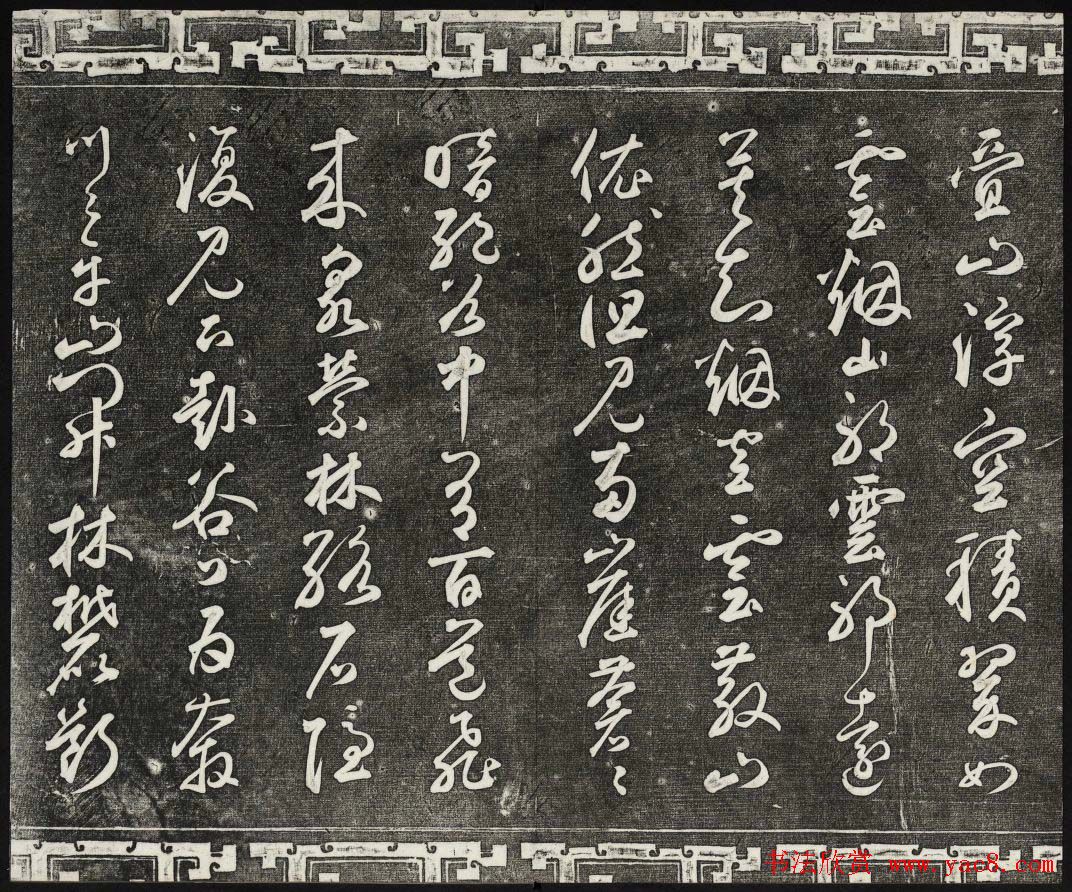 疊山浮空積翠如
雲烟山耶雲耶遠
莫知烟空雲散山
依然但見兩崖蒼〻
暗絶谷中有百道飛
來泉縈林絡石隱
復見下赴谷口為奔
川〻平山開林麓斷
书法欣赏 www.yac8.com